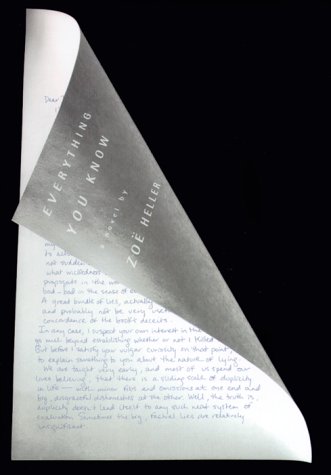 Dear
EVERYTHING
YOU KNOW
a novel by
ZOË HELLER
my
not
what
in the
bad – bad in the sense of
A great bundle of lies, actually
and probably not be very
concordance of the book's deceits.
In any case, I suspect your own interest in the
go much beyond establishing whether or not I killed
But before I satisfy your vulgar curiosity on that point,
to explain something to you about the nature of lying.
We are taught very early, and most of us spend our
lives believing, that there is a sliding scale of duplicity
in life — with minor fibs and omissions at one end and
big, disgraceful dishonesties at the other. Well, the truth is,
duplicity doesn't lend itself to any such neat system of
evaluation. Sometimes the big, factual lies are relatively
insignificant.